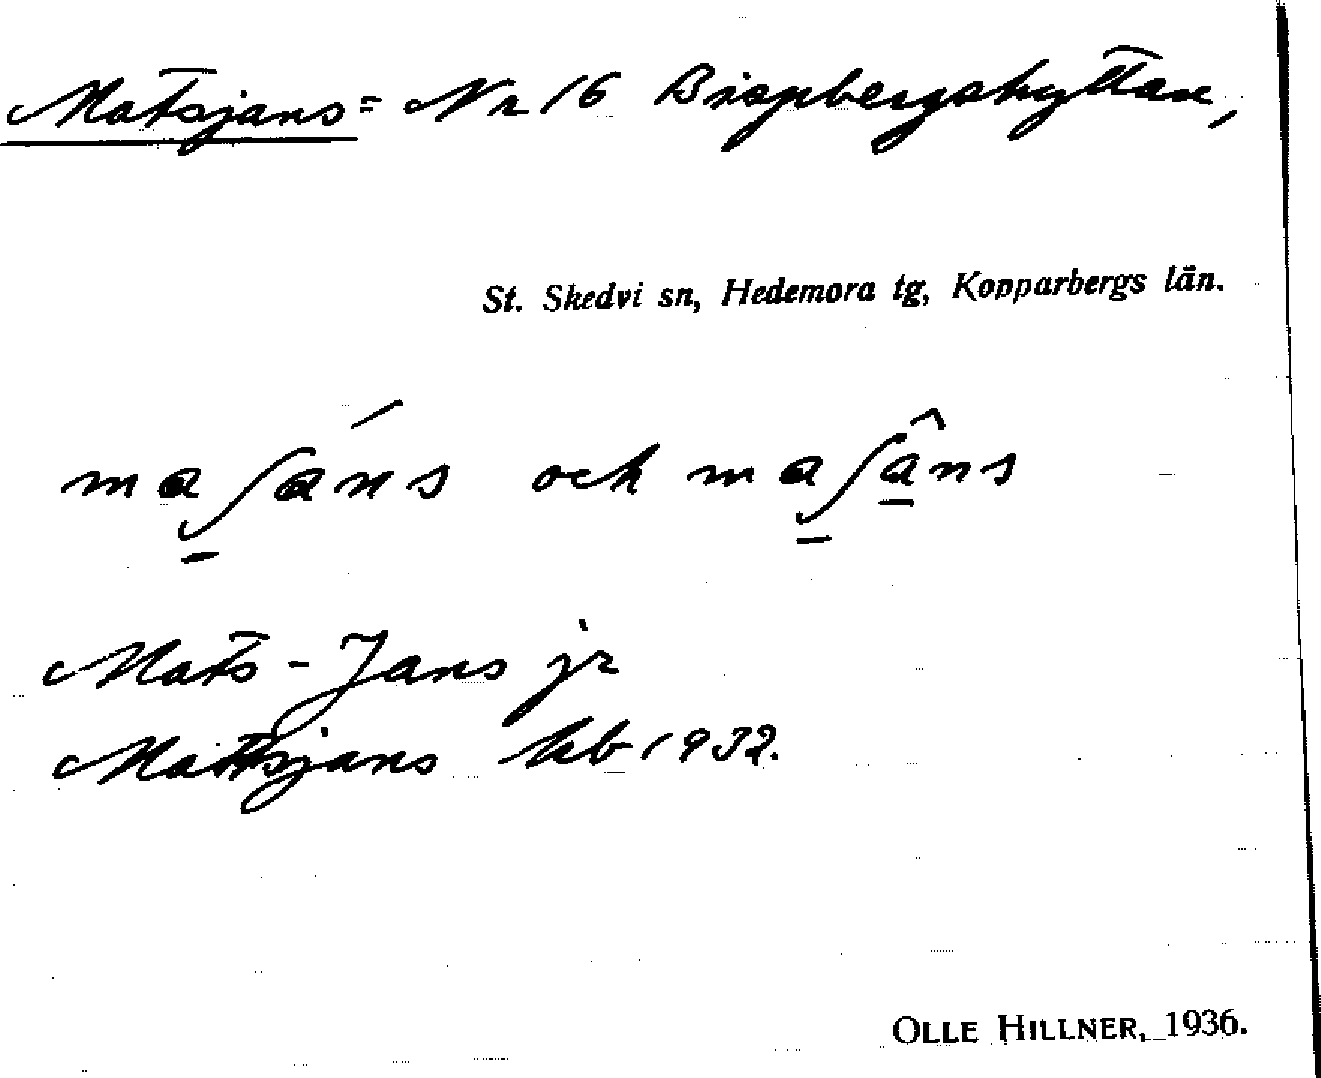 Matsjans = Nr 16 Bispbergshyttan,
St. Skedvi sn, Hedemora tg, Kopparbergs län.
maʃáns och maʃâns
Mats-Jans jr
Mattsjans kb 1932.
OLLE HILLNER, 1936.